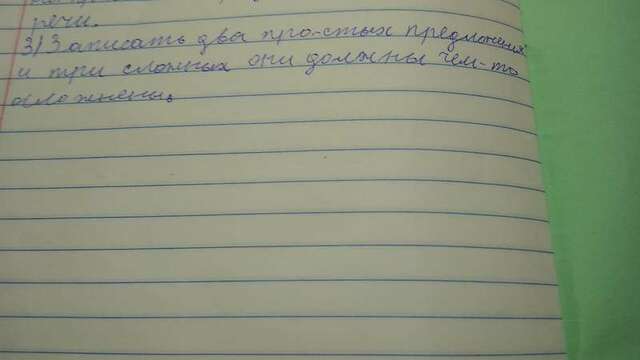 речи.
3) Записать два простых предложения
и три сложных они должны чем-то
осложнены.